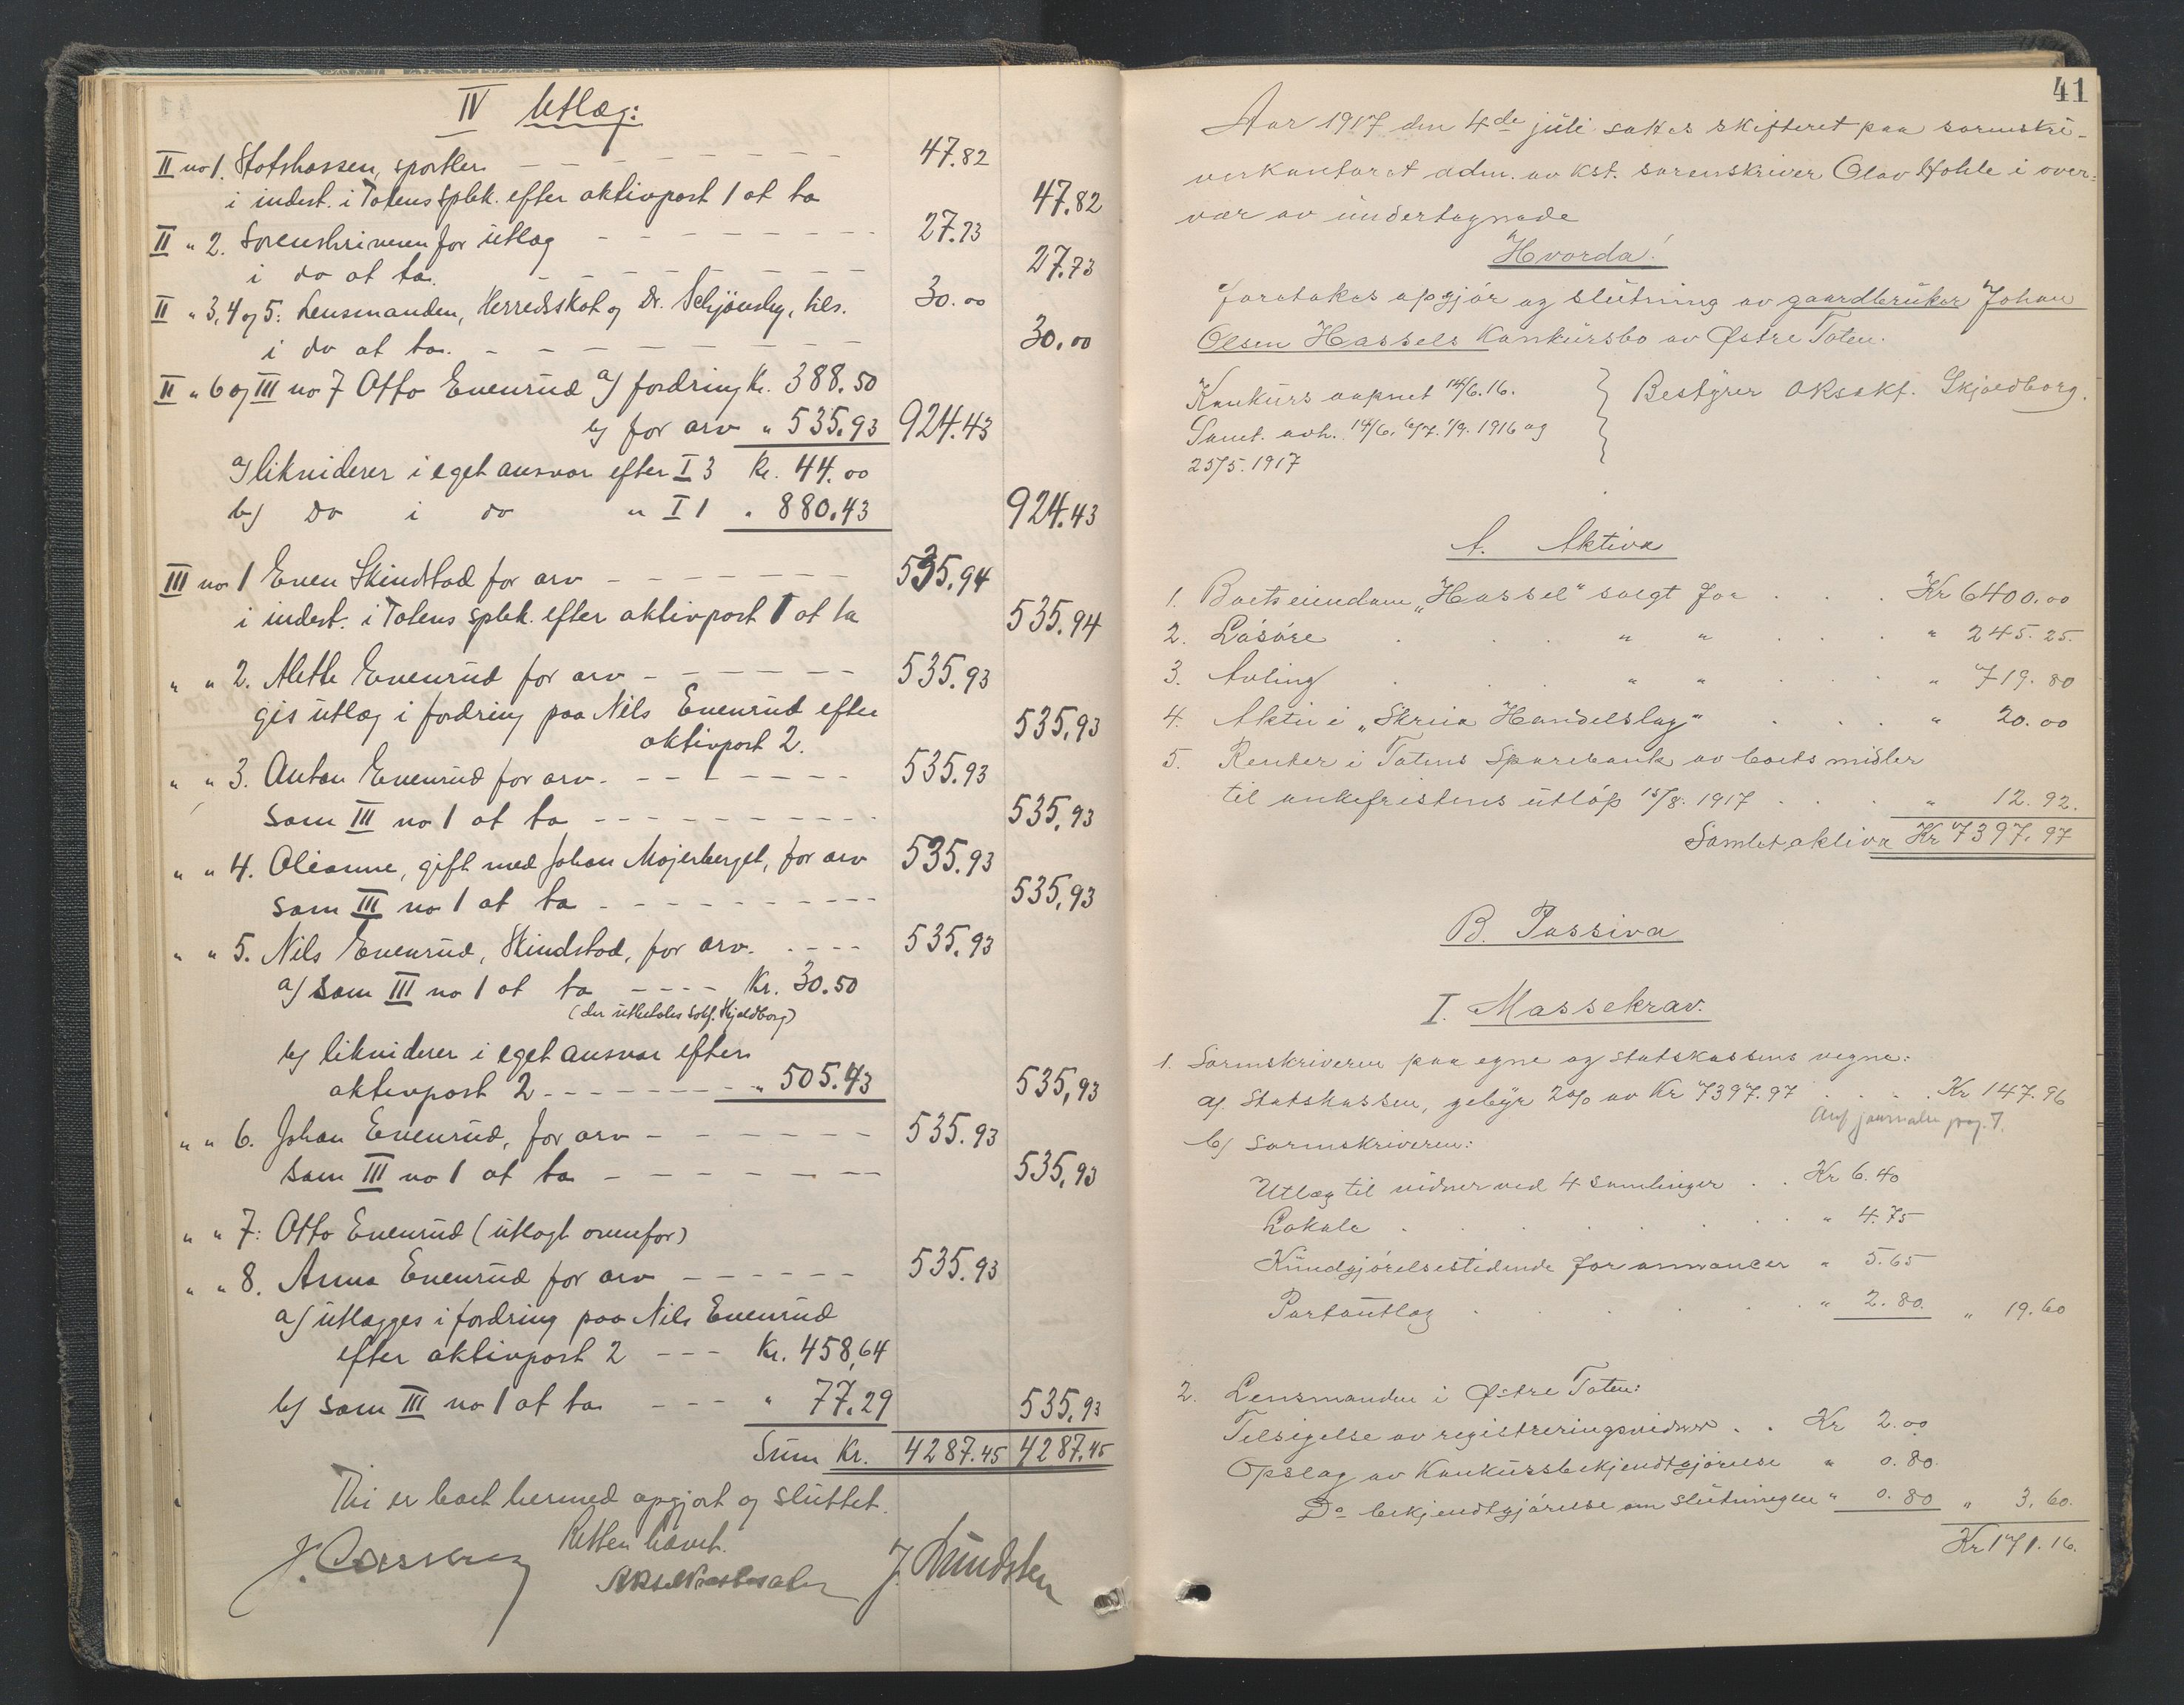 IV Utlæg:
II no 1. Statskassen, sportler 47.82
i indest. i Totens spbk. efter aktivpost 1 at ta 47.82
II " 2. Sorenskriveren for utlæg 27.73
i do at ta. 27.73
II " 3, 4 og 5: Lensmanden, Herredskat og Dr. Schjønsby, tils. 30.00
i do at ta. 30.00
II " 6 og III no 7 Otto Evenrud a) fordring Kr. 388.50
b) for arv " 535.93 924.43
a) likviderer i eget ansvar efter I 3 Kr. 44.00
b) do i do " I 1 " 880.43 924.43
III no 1 Even Skindstad for arv 535.94
i indest. i Totens spbk. efter aktivpost 1 at ta 535.94
" " 2. Alette Evenrud for arv 535.93
gis utlæg i fordring paa Nils Evenrud efter
aktivpost 2. 535,93
" " 3. Anton Evenrud for arv. 535.93
som III no 1 at ta 535,93
" " 4. Oleanne, gift med Johan Majerberget, for arv 535.93
som III no 1 at ta 535,93
" " 5. Nils Evenrud, Skindstad, for arv. 535.93
a) som III no 1 at ta Kr. 30.50
(der utbetales Skjeldborg)
b) likviderer i eget ansvar efter
aktivpost 2 " 505.43 535,93
" " 6. Johan Evenrud, for arv 535.93
som III no 1 at ta 535,93
" " 7: Otto Evenrud (utlagt ovenfor)
" " 8. Anna Evenrud for arv 535.93
a) utlægges i fordring paa Nils Evenrud
efter aktivpost 2 Kr. 458,64
b) som III no 1 at ta " 77.29 535,93
Sum Kr. 4287.45 4287.45
Thi er boet hermed opgjort og sluttet.
Retten hævet.
J. Lundsten
41
Aar 1917 den 4de juli sattes skifteret paa sorenskri-
verkontoret adm. av kst. sorenskriver Olav Hohle i over-
vær av undertegnede
Hvorda!
foretokes opgjør og slutning av gaardbruker Johan
Olsen Hassels konkursbo av Østre Toten.
Konkurs aapnet 14/6.16. } Bestyrer O.R.sakf. Skjoldborg.
Saml. avh. 14/6. 6/7. 1/9. 1916 og
25/5. 1917
A. Aktiva
1. Boets eiendom "Hassel" solgt for Kr 6400.00
2. Løsøre " " " 245.25.
3. Avling " " " 719.80
4. Aktie i "Skreia Handelslag" " 20.00
5. Renter i Totens Sparebank av boets midler
til ankefristens utløp 15/8. 1917 " 12.92.
Samlet aktiva Kr 7397.97
B. Passiva
I. Massekrav.
1. Sorenskriveren paa egne og statskassens vegne:
a). Statskassen, gebyr 2% av Kr 7397.97 Kr 147.96
Anf journalen pag. 7.
b) Sorenskriveren:
Utlæg til vidner ved 4 samlinger Kr 6.40
Lokale " 4.75
Kundgjørelsestidende for annoncer " 5.65
Portoutlæg " 2.80. " 19.60
2. Lensmanden i Østre Toten:
Tilsigelse av registreringsvidner Kr 2.00
Opslag av konkursbekjendtgjørelse " 0.80.
Do bekjendtgjørelse om slutningen " 0.80 " 3.60.
Kr 171.16.